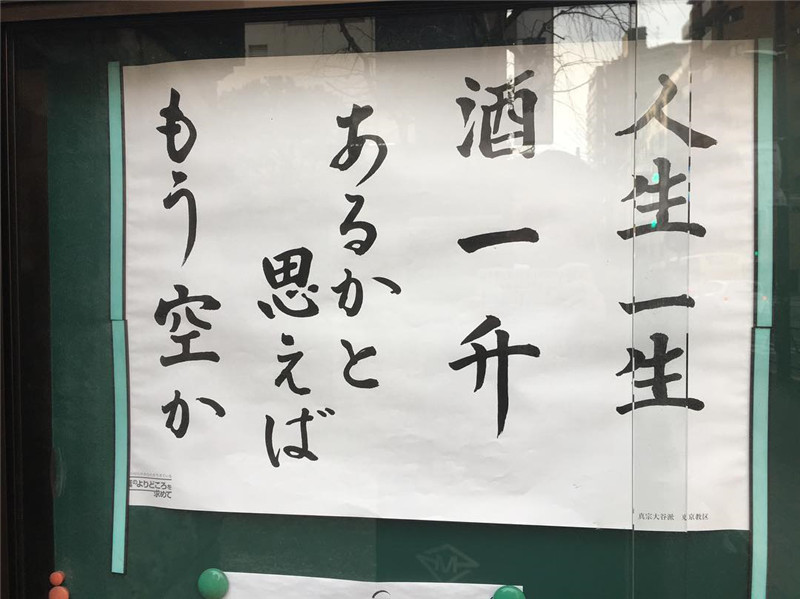 人生一生
酒一升
あるかと
思えば
もう空か
真宗大谷派 東京教区
よりどころを
求めて